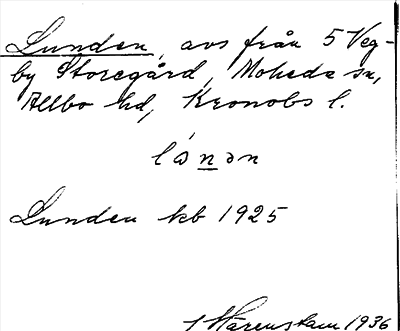 Lunden, avs från 5 Veg-
by Storegård, Moheda sn,
Allbo hd, Kronobs l.
lánən
Lunden kb 1925
Härenstam 1936